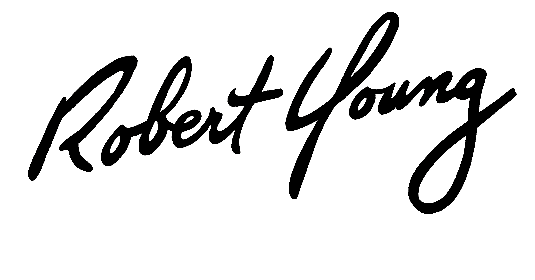 Robert Young